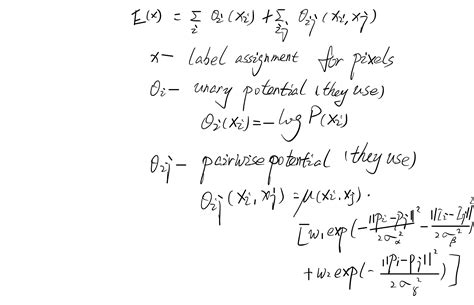 E(x) = Σ_i θ_i(x_i) + Σ_ij θ_ij(x_i, x_j)
x — label assignment for pixels
θ_i — unary potential (they use)
θ_i(x_i) = -log P(x_i)
θ_ij — pairwise potential (they use)
θ_ij(x_i, x_j) = μ(x_i, x_j) ·
[w_1 exp(-||p_i-p_j||²/2σ_α² - ||I_i-I_j||²/2σ_β²)
+ w_2 exp(-||p_i-p_j||²/2σ_γ²)]